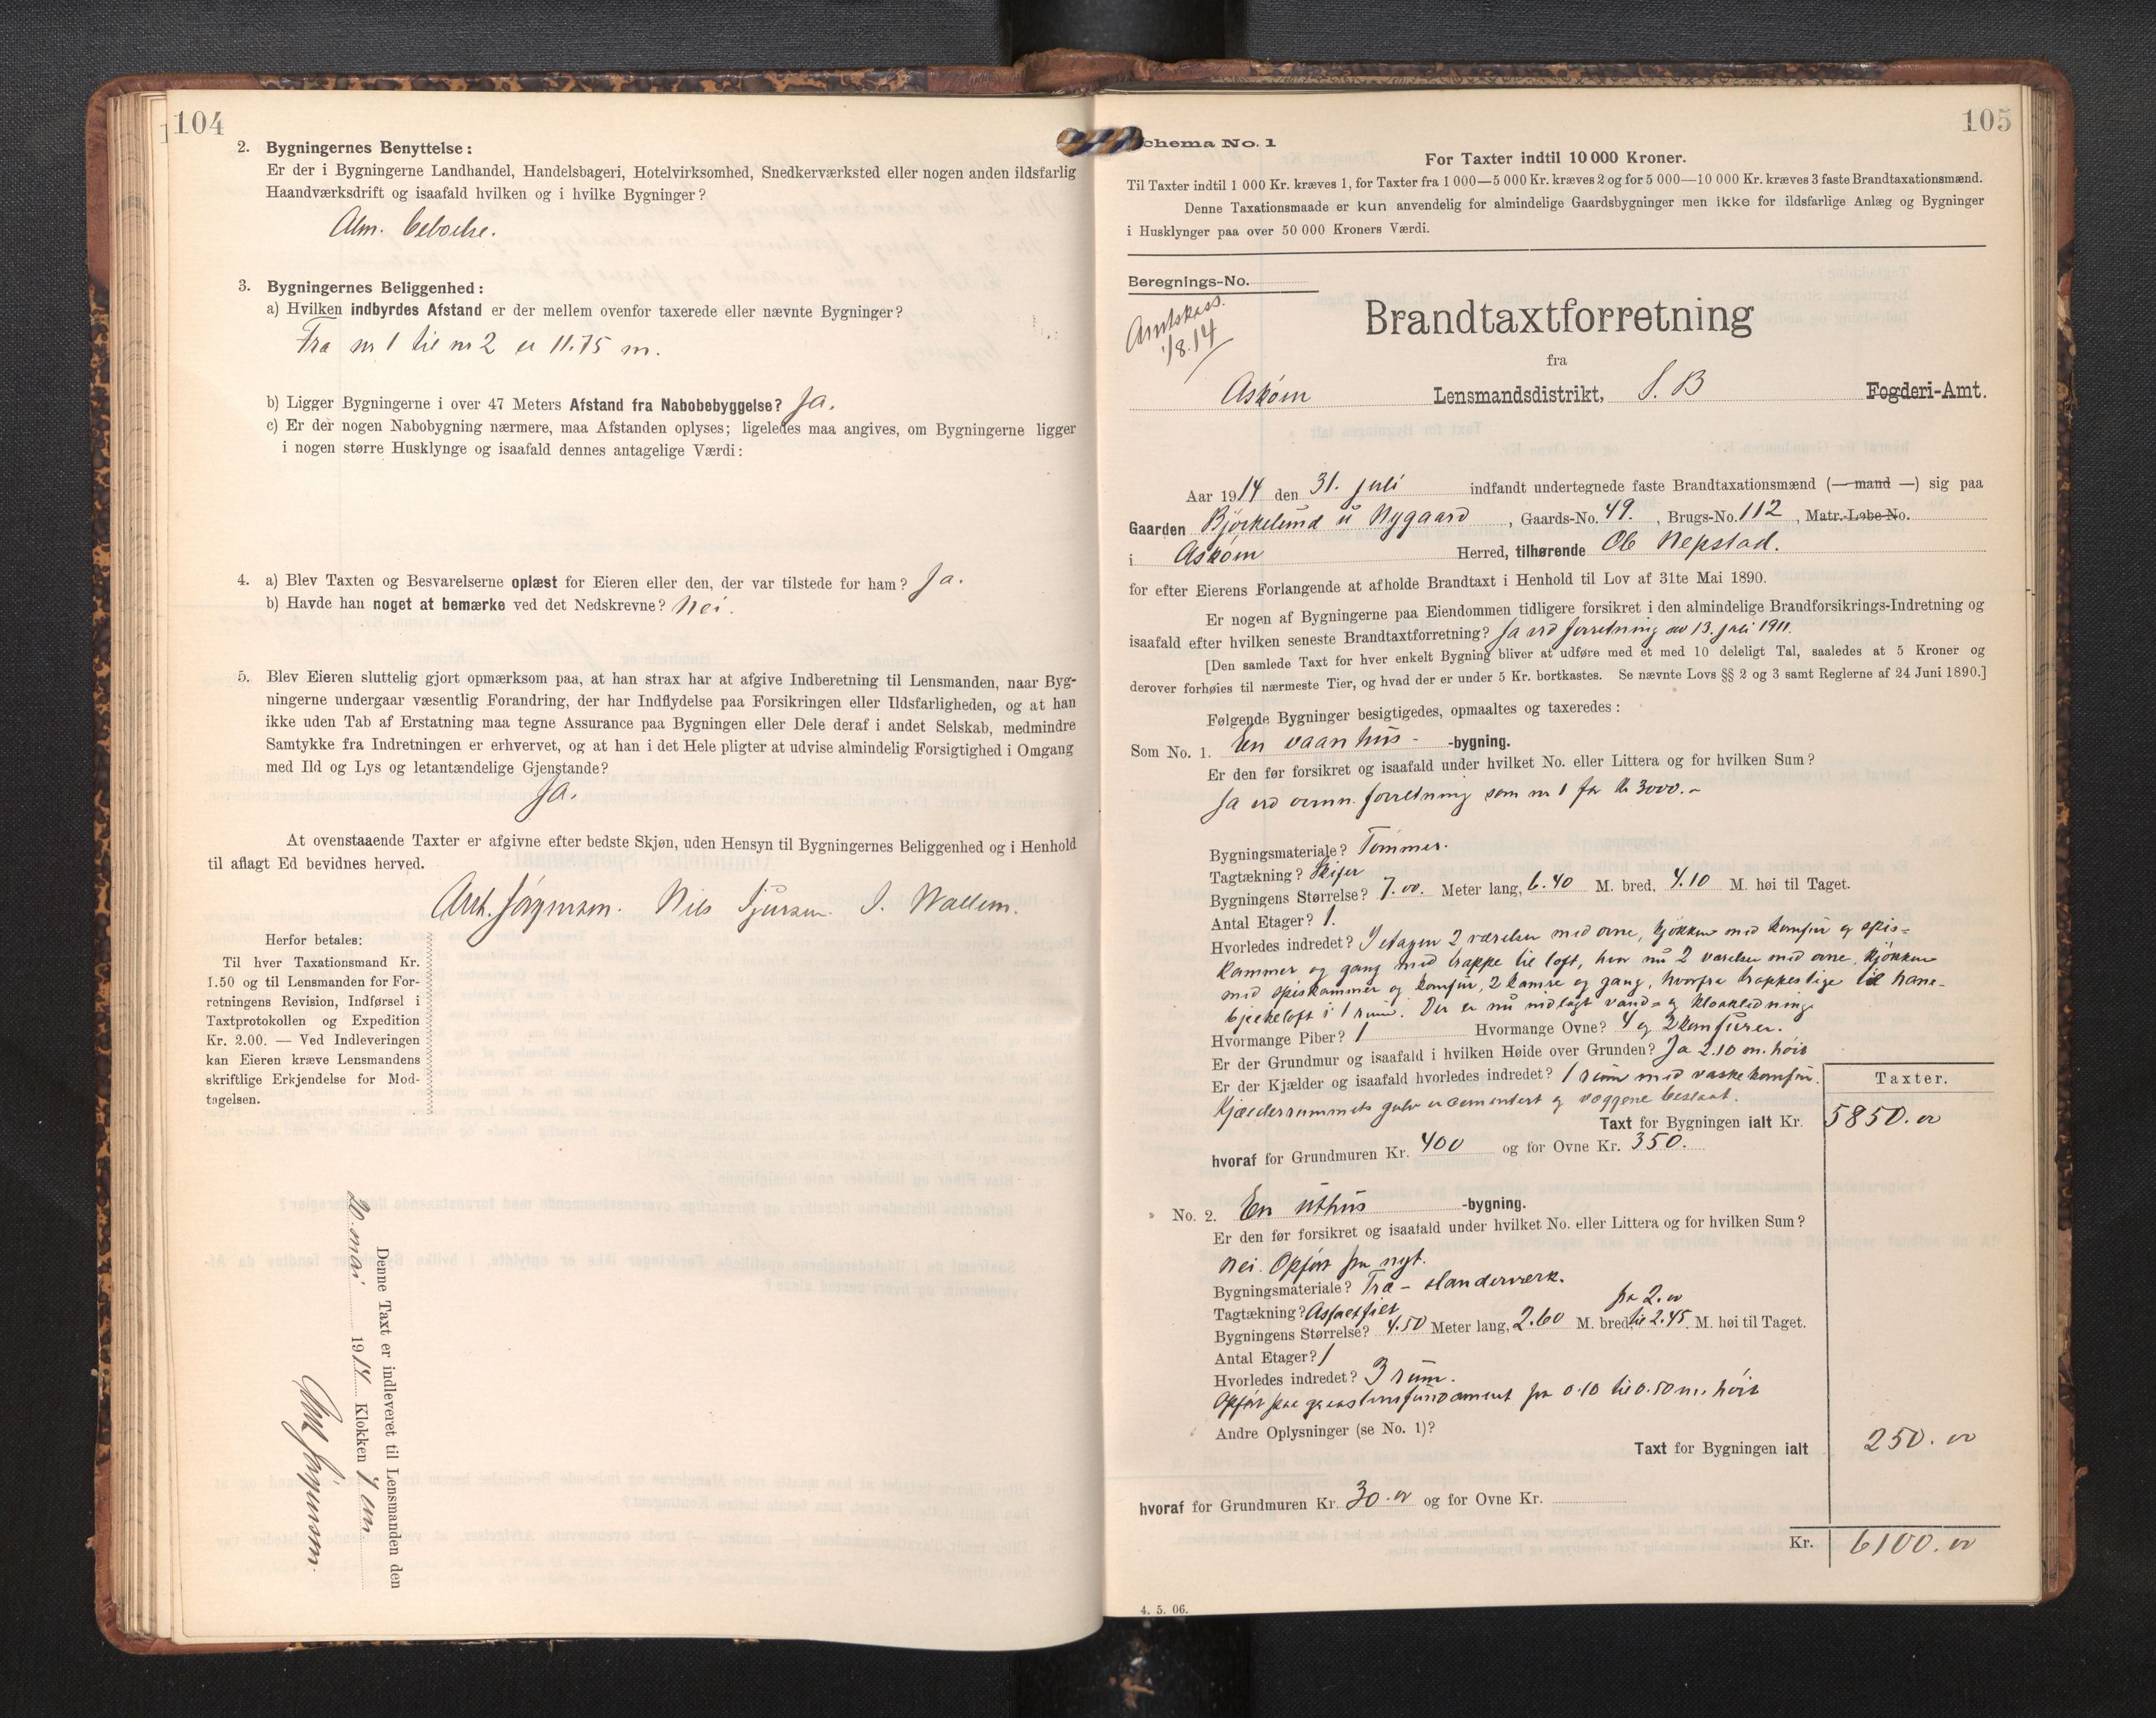 104
2. Bygningernes Benyttelse:
Er der i Bygningerne Landhandel, Handelsbageri, Hotelvirksomhed, Snedkerværksted eller nogen anden ildsfarlig
Haandværksdrift og isaafald hvilken og i hvilke Bygninger?
Alm. beboelse.
3. Bygningernes Beliggenhed:
a) Hvilken indbyrdes Afstand er der mellem ovenfor taxerede eller nævnte Bygninger?
Fra nr 1 til nr 2 er 11.75 m.
b) Ligger Bygningerne i over 47 Meters Afstand fra Nabobebyggelse? Ja.
c) Er der nogen Nabobygning nærmere, maa Afstanden oplyses; ligeledes maa angives, om Bygningerne ligger
i nogen større Husklynge og isaafald dennes antagelige Værdi:
4. a) Blev Taxten og Besvarelserne oplæst for Eieren eller den, der var tilstede for ham? Ja.
b) Havde han noget at bemærke ved det Nedskrevne? Nei.
5. Blev Eieren sluttelig gjort opmærksom paa, at han strax har at afgive Indberetning til Lensmanden, naar Byg-
ningerne undergaar væsentlig Forandring, der har Indflydelse paa Forsikringen eller Ildsfarligheden, og at han
ikke uden Tab af Erstatning maa tegne Assurance paa Bygningen eller Dele deraf i andet Selskab, medmindre
Samtykke fra Indretningen er erhvervet, og at han i det Hele pligter at udvise almindelig Forsigtighed i Omgang
med Ild og Lys og letantændelige Gjenstande?
Ja.
At ovenstaaende Taxter er afgivne efter bedste Skjøn, uden Hensyn til Bygningernes Beliggenhed og i Henhold
til aflagt Ed bevidnes herved.
Ant. Jörgensen. Nils Sjursen. J. Wallem.
Herfor betales:
Til hver Taxationsmand Kr.
1.50 og til Lensmanden for For-
retningens Revision, Indførsel i
Taxtprotokollen og Expedition
Kr. 2.00. — Ved Indleveringen
kan Eieren kræve Lensmandens
skriftlige Erkjendelse for Mod-
tagelsen.
Denne Taxt er indleveret til Lensmanden den
20. mai 1914 Klokken 7 em
Ant Jörgensen.
105
Schema No. 1
For Taxter indtil 10 000 Kroner.
Til Taxter indtil 1 000 Kr. kræves 1, for Taxter fra 1 000—5 000 Kr. kræves 2 og for 5 000—10 000 Kr. kræves 3 faste Brandtaxationsmænd.
Denne Taxationsmaade er kun anvendelig for almindelige Gaardsbygninger men ikke for ildsfarlige Anlæg og Bygninger
i Husklynger paa over 50 000 Kroners Værdi.
Beregnings-No.
Amtskass.
1/8.14
Brandtaxtforretning
fra
Askøin Lensmandsdistrikt, S. B Fogderi-Amt.
Aar 1914 den 31. juli indfandt undertegnede faste Brandtaxationsmænd (— mand —) sig paa
Gaarden Björkelund u Nygaard, Gaards-No. 49., Brugs-No. 112, Matr.-Løbe-No.
i Askøin Herred, tilhørende Ole Nepstad.
for efter Eierens Forlangende at afholde Brandtaxt i Henhold til Lov af 31te Mai 1890.
Er nogen af Bygningerne paa Eiendommen tidligere forsikret i den almindelige Brandforsikrings-Indretning og
isaafald efter hvilken seneste Brandtaxtforretning? Ja ved forretning av 13. juli 1911.
[Den samlede Taxt for hver enkelt Bygning bliver at udføre med et med 10 deleligt Tal, saaledes at 5 Kroner og
derover forhøies til nærmeste Tier, og hvad der er under 5 Kr. bortkastes. Se nævnte Lovs §§ 2 og 3 samt Reglerne af 24 Juni 1890.]
Følgende Bygninger besigtigedes, opmaaltes og taxeredes:
Som No. 1. En vaanhus- -bygning.
Er den før forsikret og isaafald under hvilket No. eller Littera og for hvilken Sum?
Ja ved ovnn. forretning som nr 1 for kr 3000.-
Bygningsmateriale? Tømmer.
Tagtækning? Skifer
Bygningens Størrelse? 7.00. Meter lang, 6.40 M. bred, 4.10 M. høi til Taget.
Antal Etager? 1.
Hvorledes indredet? I etagen 2 værelser med ovne, kjøkken med komfur og spis-
kammer og gang med trappe til loft, hvor nu 2 værelser med ovne, kjøkken
med spiskammer og komfur, 2 kamre og gang, hvorfra trappestige til hane-
bjelkeloft i 1 rum. Der er nu nedlagt vand- og kloakledning
Hvormange Piber? 1 Hvormange Ovne? 4 og 2 komfurer.
Er der Grundmur og isaafald i hvilken Høide over Grunden? Ja 2.10 m. höit
Er der Kjælder og isaafald hvorledes indredet? 1 rum med vaskekomfur.
Kjælderrummets gulv er cementert og væggene beslaat.
Taxter.
Taxt for Bygningen ialt Kr. 5850.00
hvoraf for Grundmuren Kr. 400 og for Ovne Kr. 350.
No. 2. En uthus -bygning.
Er den før forsikret og isaafald under hvilket No. eller Littera og for hvilken Sum?
Nei. Opført fra nyt.
Bygningsmateriale? Træ - standerværk.
Tagtækning? Asfaltfilt
Bygningens Størrelse? 4.50 Meter lang, 2.60 M. bred, fra 2.00 til 2.45. M. høi til Taget.
Antal Etager? 1
Hvorledes indredet? 3 rum.
Opført paa graastensfundament fra 0.10 til 0.50 m. höit
Andre Oplysninger (se No. 1)?
Taxt for Bygningen ialt 250.00
hvoraf for Grundmuren Kr. 30.00 og for Ovne Kr.
Kr. 6100.00
4. 5. 06.